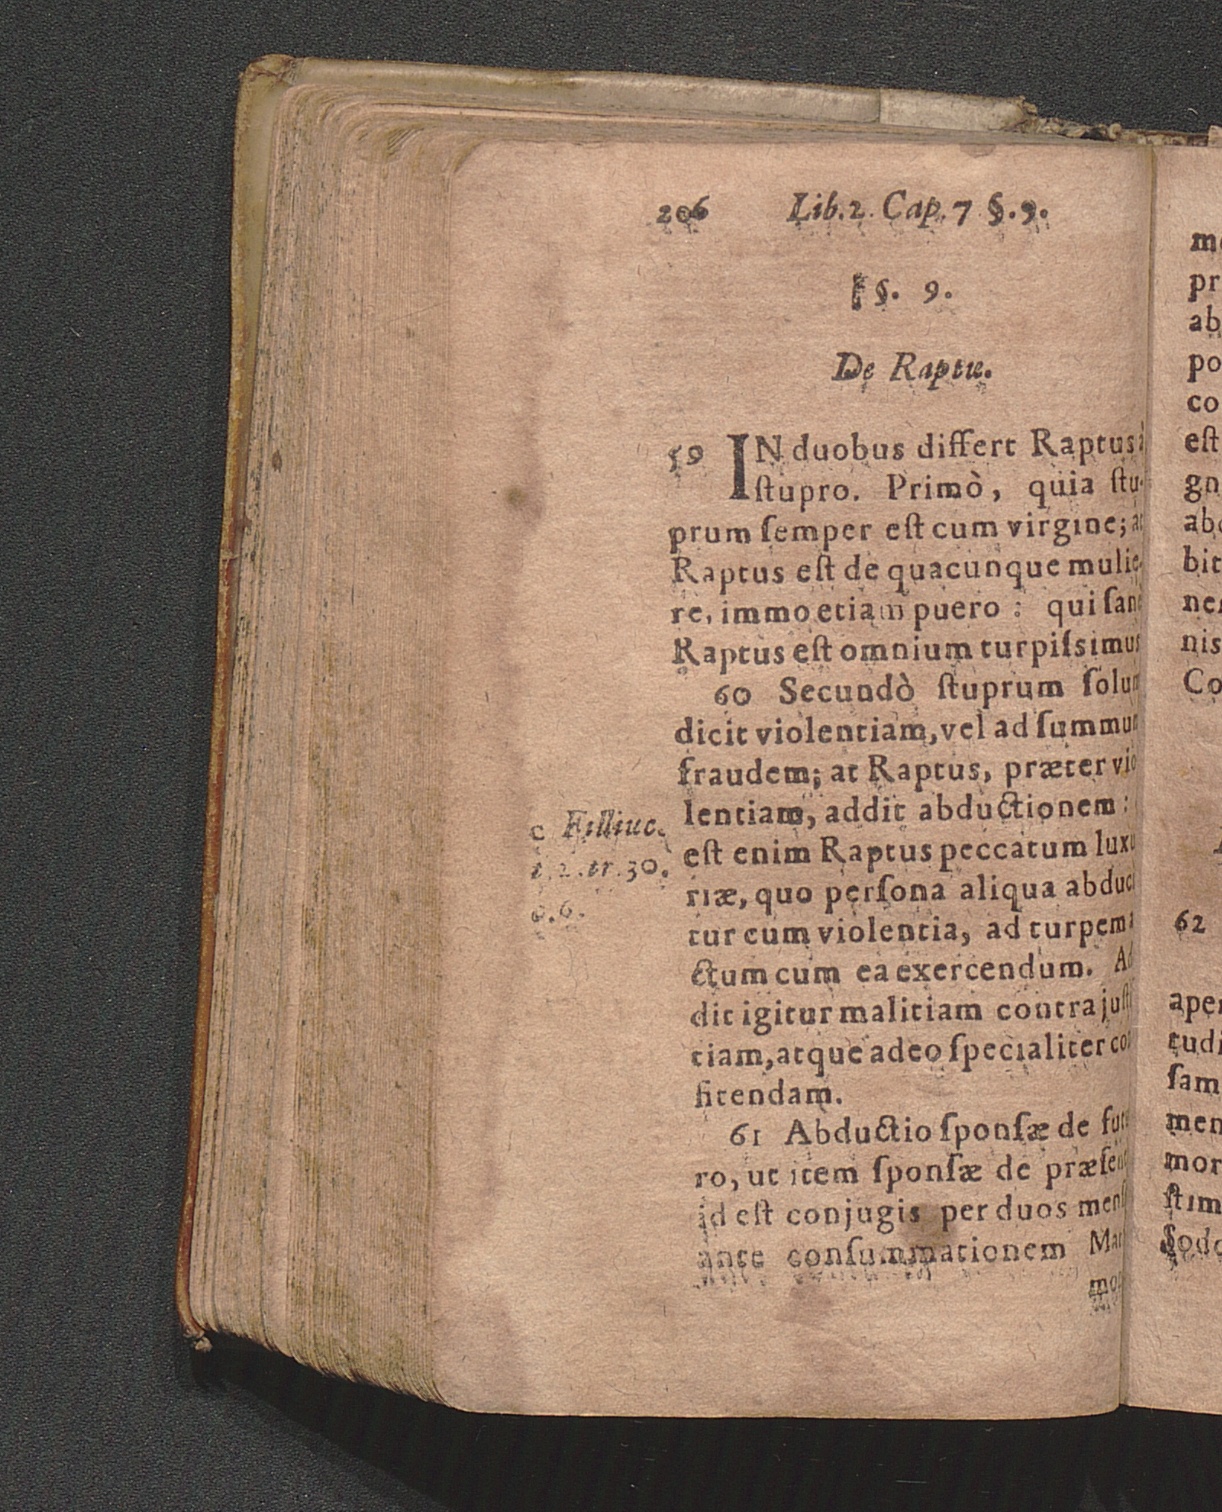 206 Lib. 2. Cap. 7 §. 9.
§. 9.
De Raptu.
59 IN duobus differt Raptus à
ſtupro. Primò, quia ſtu-
prum ſemper eſt cum virgine; at
Raptus eſt de quacunque mulie-
re, immo etiam puero : qui ſane
Raptus eſt omnium turpiſsimus
60 Secundò ſtuprum ſolum
dicit violentiam, vel ad ſummum
fraudem; at Raptus, præter vio
lentiam, addit abductionem :
eſt enim Raptus peccatum luxu
riæ, quo perſona aliqua abduci
tur cum violentia, ad turpem a
ctum cum ea exercendum. Ad
dit igitur malitiam contra juſti
tiam, atque adeo ſpecialiter con
fitendam.
c Filliuc.
t. 2. tr. 30.
c. 6.
61 Abductio ſponſæ de futu
ro, ut item ſponſæ de præſent
id eſt conjugis per duos menſ
ante conſummationem Mat
mo
pr
ab
po
co
eſt
gn
bit
nis
Co
62
tudi
ſam
men
mor
ſtim
Sodo